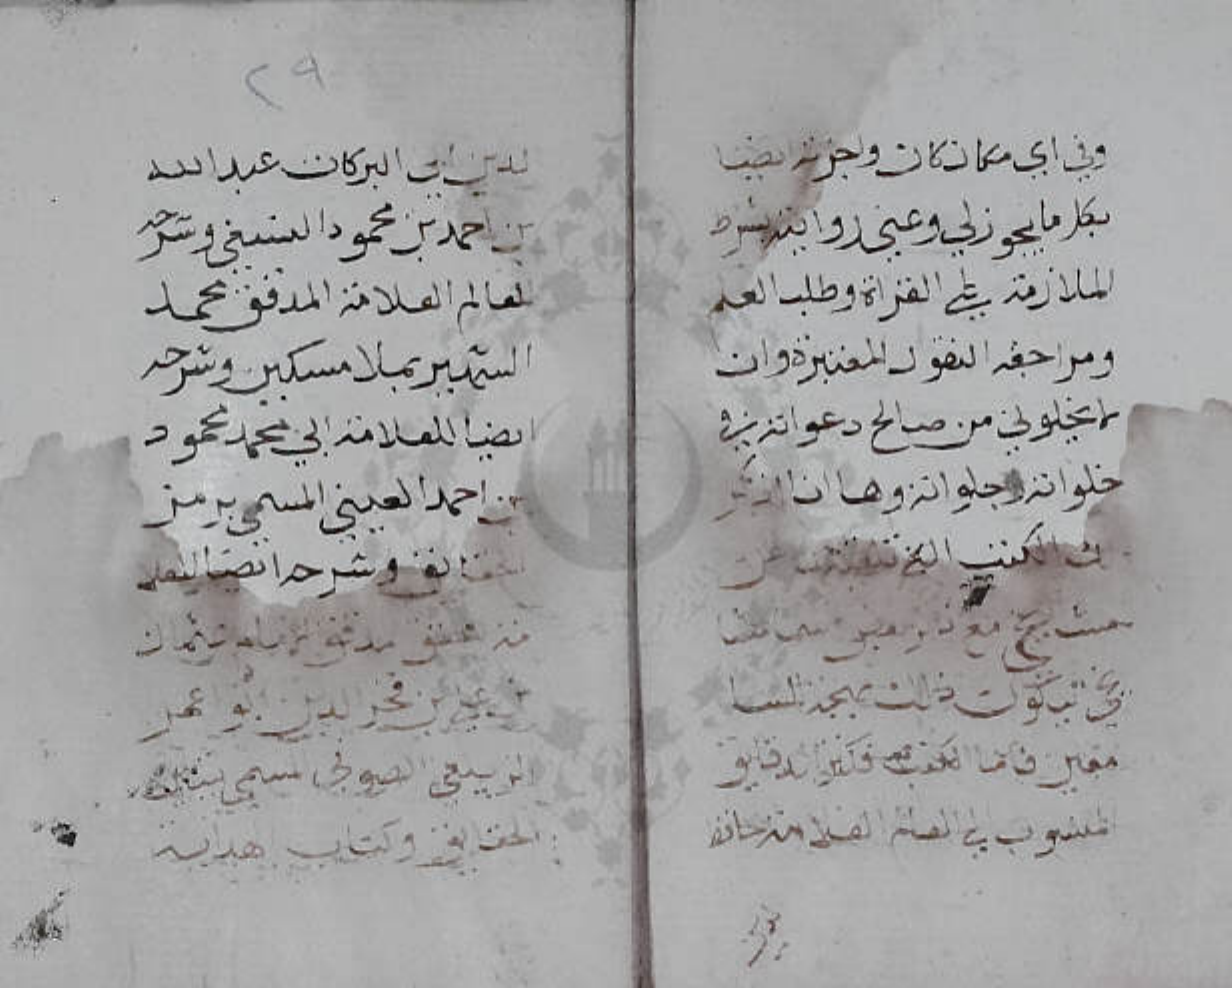 وفي اي مكان كان واجزته ايضا
بكل ما يجوز لي وعني روايته بشرط
الملازمة على القراة وطلب العلم
ومراجعة النقول المعتبرة وان
لا يخلوني من صالح دعواته في
خلواته وجلواته وها انا اذكر
الكتب التي تلقيتها عن
مع
ذلك بهجة
معين فاما الكتب فكنز الدقايق
المنسوب الى العالم العلامة حافظ
٢٩
الدين ابي البركات عبد الله
بن احمد بن محمود النسفي وشرحه
للعالم العلامة المدقق محمد
الشهير بملا مسكين وشرحه
ايضا للعلامة ابي محمد محمود
بن احمد العيني المسمى برمز
الحقايق وشرحه ايضا للعلا
مة
بن علي بن فخر الدين ابو عمر
الزيلعي الصوفي المسمى بتبيين
الحقايق وكتاب هداية